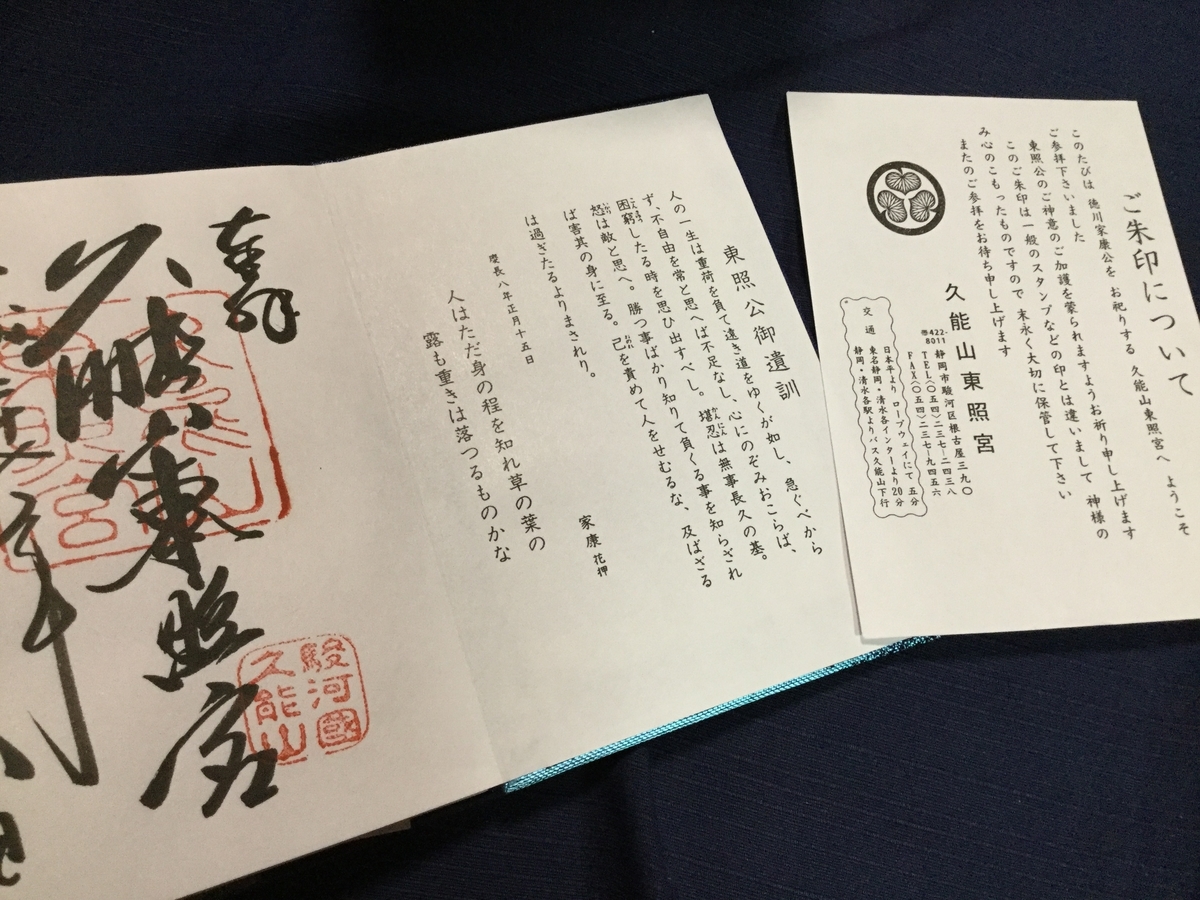 ご朱印について
このたびは 徳川家康公を お祀りする 久能山東照宮へ ようこそ
ご参拝下さいました
東照公のご神意のご加護を蒙られますようお祈り申し上げます
このご朱印は一般のスタンプなどの印とは違いまして 神様の
み心のこもったものですので 末永く大切に保管して下さい
またのご参拝をお待ち申し上げます
久能山東照宮
〠422-8011 静岡市駿河区根古屋三九〇
TEL(〇五四)二三七-二四三八
FAX(〇五四)二三七-九四五六
交通
日本平より ロープウェイにて 五分
東名静岡・清水各インターより20分
静岡・清水各駅よりバス久能山下行
東照公御遺訓
人の一生は重荷を負て遠き道をゆくが如し、急ぐべから
ず、不自由を常と思へば不足なし、心にのぞみおこらば、
困窮したる時を思ひ出すべし。堪忍は無事長久の基。
怒は敵と思へ。勝つ事ばかり知りて負くる事を知らされ
ば害其の身に至る。己を責めて人をせむるな、及ばざる
は過ぎたるよりまされり。
慶長八年正月十五日
家康 花押
人はただ身の程を知れ草の葉の
露も重きは落つるものかな
奉拝
久能山東照宮
駿河國
久能山